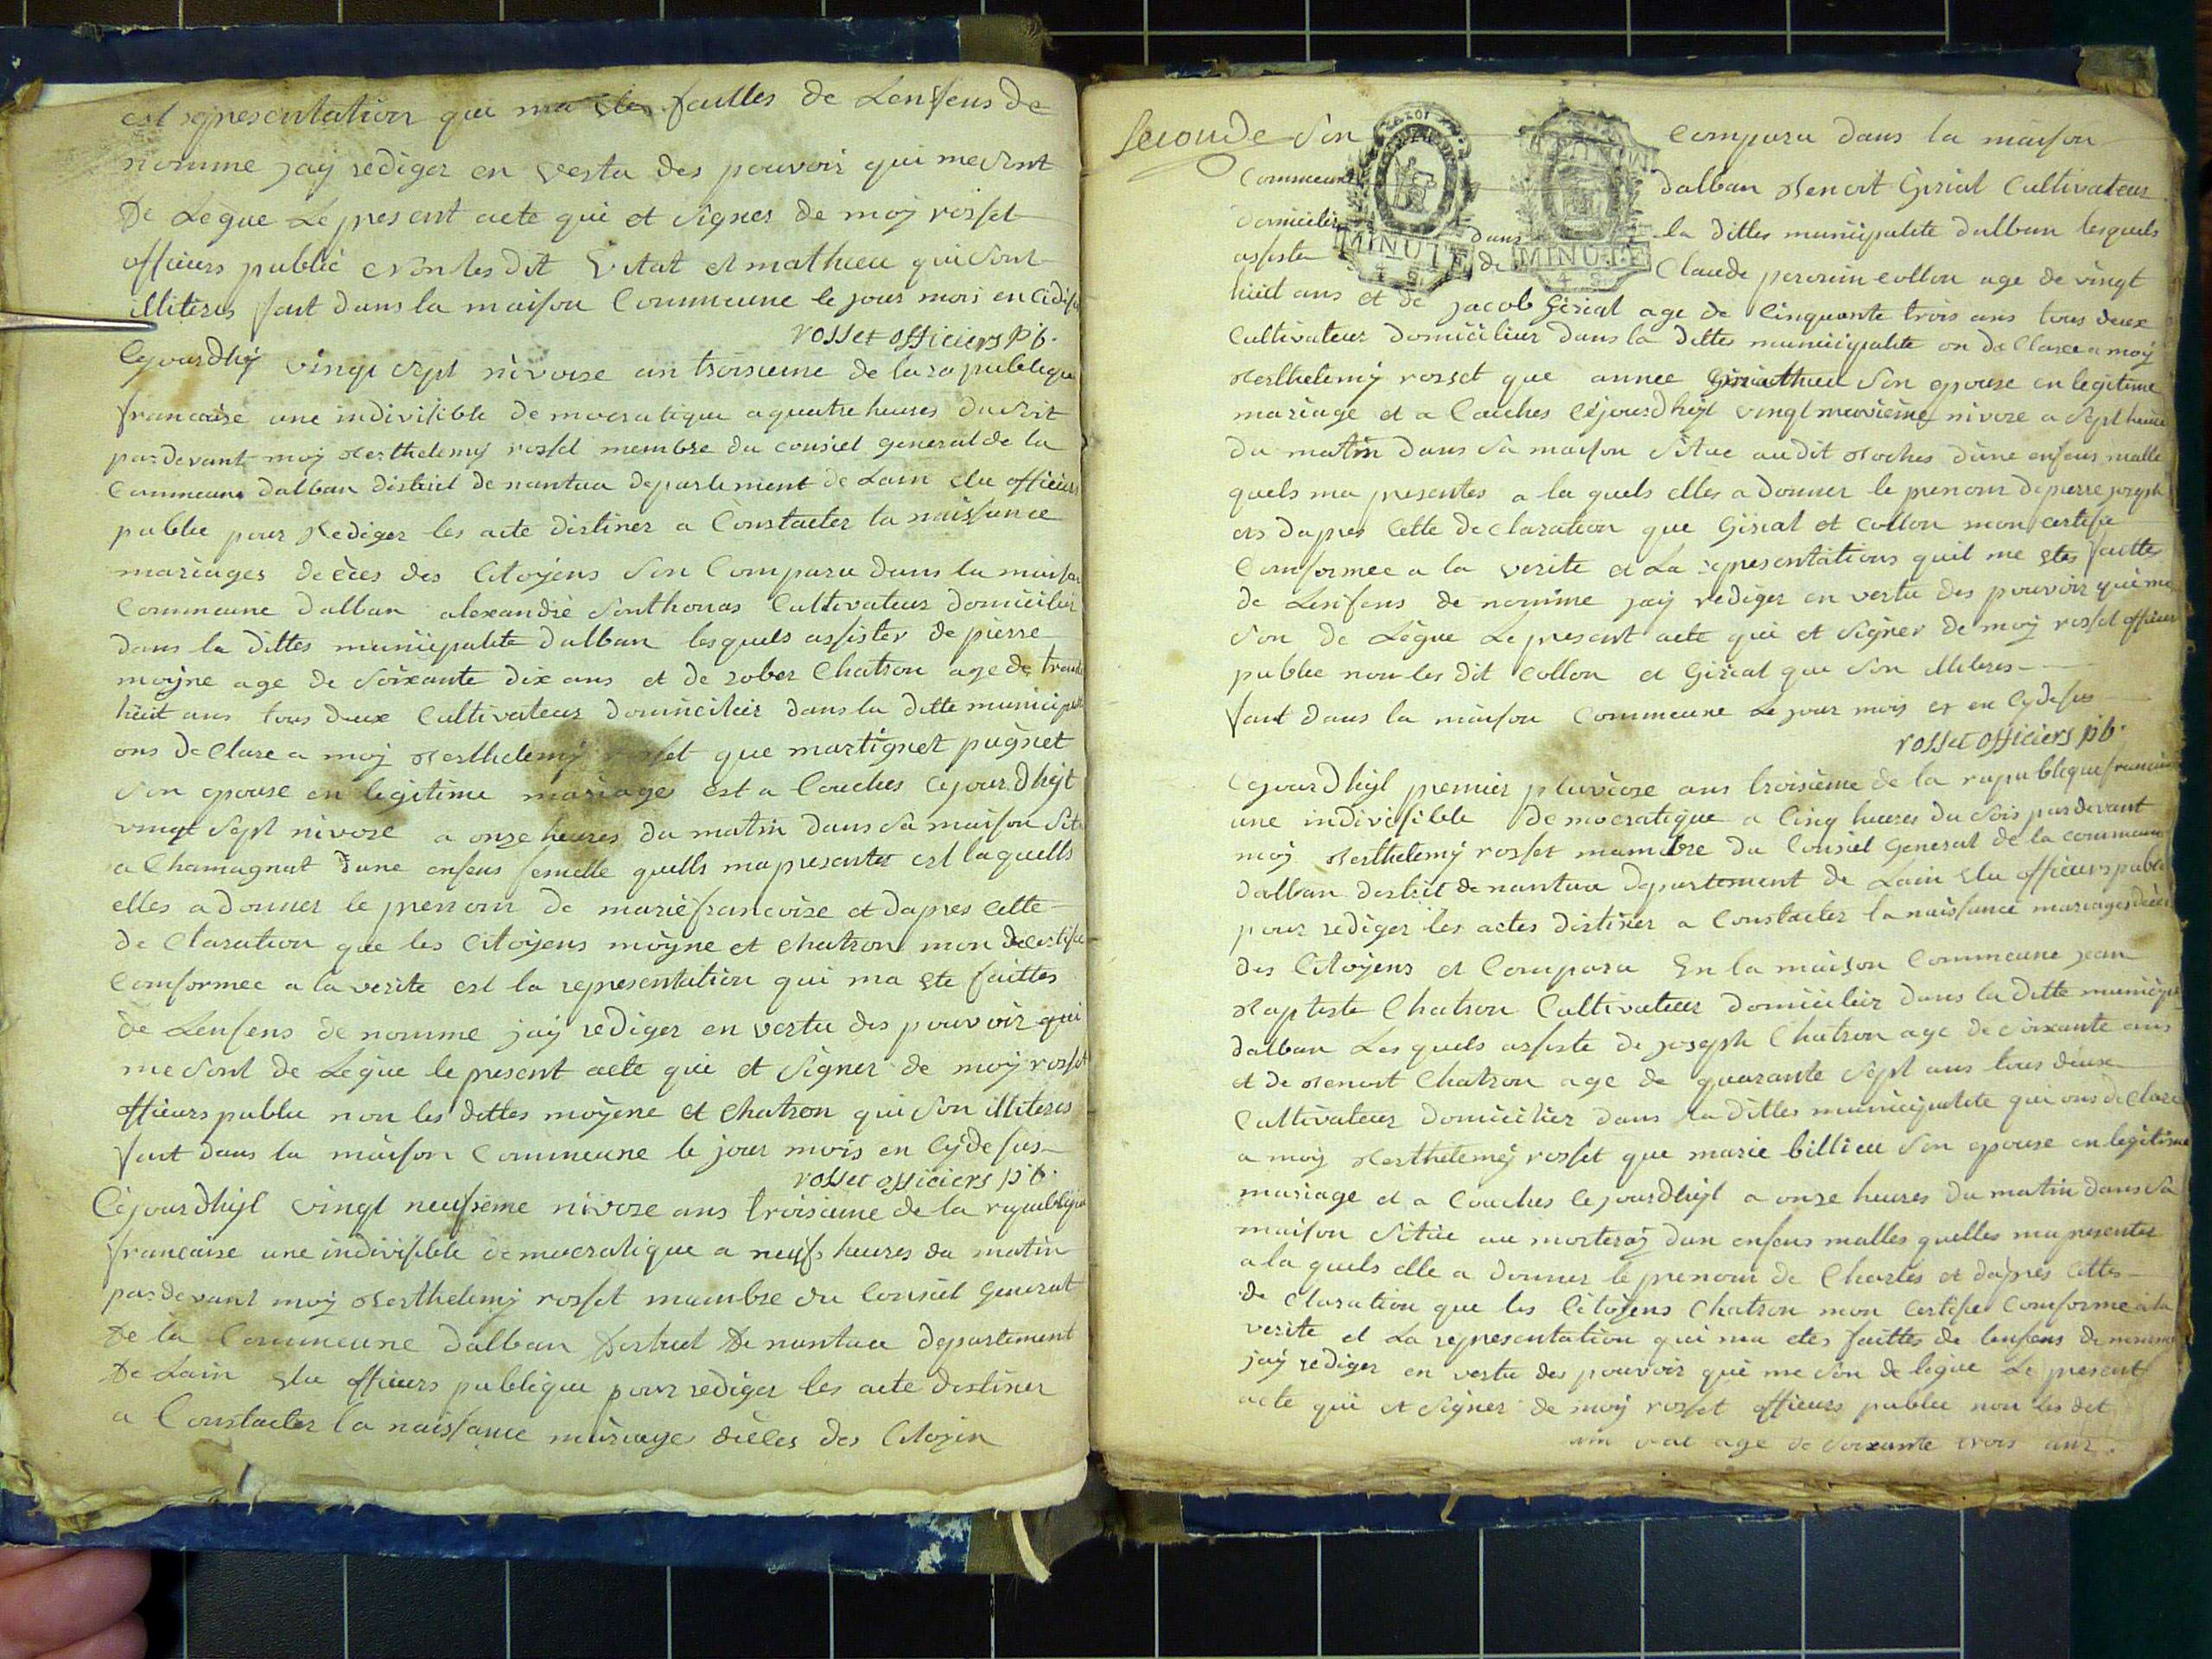 est representation qui ma ete faittes de Lenfens de
nomme jaÿ rediger en vertu des pouvoir qui me sont
De Legue Le present acte qui et signer de moÿ rosset
officiers public non les dit Vitat et mathieu qui sont
illiteres fait dans la maison Commeune le jour mois en cidesu
rosset officiers pb.
Cejourdhÿ vingt sept nivose an troisieme de la republique
francaise une indivisible democratique a quatre heures du soit
pardevant moÿ Berthelemÿ rosset membre du consiel general de la
Commeune dalban district de nantua departement de Lain elu officiers
public pour Rediger les acte distiner a Constacter la naissance
mariages décès des Citoÿens son Comparu dans la maison
Commeune dalban alexandre Sonthonas Cultivateur domicilier
dans la dittes municipalite dalban lesquels assister de pierre
moÿne age de soixante dix ans et de rober Chatron age de trante
huit ans tous deux Cultivateur domicilier dans la ditte municipalite
ons declare a moÿ Berthelemÿ rosset que martignet pugnet
son epouse en legitime mariage est a Couches cejourdhÿt
vingt sept nivose a onze heures du matin dans sa maison site
a Chamagnat dune enfens femelle quells ma presenter est laquells
elles a donner le prenom de marie francoise et dapres Cette
de Claration que les Citoÿens moÿne et chatron mon decertifie
Conformee a la verite est la representation qui ma ete faittes
de Lenfens de nomme jaÿ rediger en vertu des pouvoir qui
me sont de Legue le present acte qui et signer de moÿ rosset
officiers public non les dittes moÿene et chatron qui son illiteres
fait dans la maison Commeune le jour mois en Cÿ desus
rosset officiers pb.
Cejourdhÿt vingt neufieme nivoze ans troisieme de la republique
francaise une indivisible democratique a neufs heures du matin
pardevant moÿ Berthelemÿ rosset mambre du Consiel General
De la Commeune dalban distruct De nantua departement
De Lain elu officiers publique pour rediger les acte distiner
a Constacter la naissance mariage décès des Citoÿen
seconde son Comparu dans la maison
Commeune dalban Benoit Girial Cultivateur
domicilier dans la dittes municipalite dalban lesquels
assister de Claude peronin collon age de vingt
MINUTE
MINUTE
huit ans et de jacob Girial age de Cinquante trois ans tous deux
Cultivateur domicilier dans la dittes municipalite on de Clare a moÿ
Berthelemÿ rosset que annee mathieu son epouse en legitime
mariage et a Couches Cejourdhÿt vingt neuvieme nivoze a sept heures
du matin dans sa maison sitüe audit Roches dune enfens malle
quels ma presenter a la quels elles a donner le prenom de pierre joseph
ors dapres Cette de Claration que Girial et Collon mon certifie
Conformee a la verite et La representations quil me etes faittes
de Lenfens de nomme jaÿ rediger en vertu des pouvoir qui me
son de Legue Le present acte qui et signer de moÿ rosset officiers
public non les dit Collon et Girial que son illiteres
fait dans la maison Commeune Le jour mois es en Cÿ desus
rosset officiers pb.
Cejourdhÿt premier pluviose ans troisieme de la republique francaise
une indivisible democratique a Cinq heures du soir pardevant
moÿ Berthelemÿ rosset mambre du Consiel General de la commeune
dalban destrit de nantua departement de Lain elu officiers public
pour rediger les actes distiner a Constacter la naissance mariages décès
des Citoÿens et Comparu En la maison Commeune jean
Baptiste Chatron Cultivateur domicilier dans la ditte municipalite
dalban Les quels assiste de joseph Chatron age de soixante ans
et de Benoit Chatron age de quarante sept ans tous deux
Cultivateur domicilier dans la dittes municipalite qui ons de Clare
a moÿ Berthelemÿ rosset que marie billieu son epouse en legitime
mariage et a Couches Cejourdhÿt a onze heures du matin dans sa
maison sitüe au morteraÿ dun enfens malles quelles ma presenter
a la quels elle a donner le prenom de Charles et dapres Cettes
de Claration que les Citoÿens Chatron mon Certifie Conforme a la
verite et La representation qui ma etes faittes de lenfens de nomme
jaÿ rediger en vertu des pouvoir qui me son de legue Le present
acte qui et signer de moÿ rosset officiers public non les dit
age de soixante trois ans.